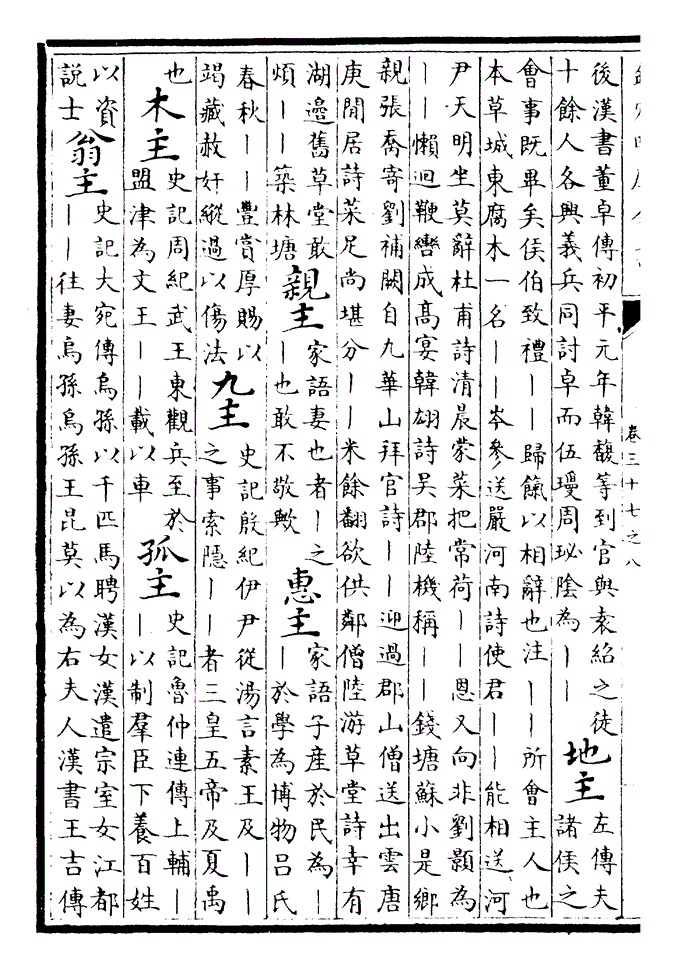 卷三十七之八
後漢書董卓傳初平元年韓馥等到官與袁紹之徒
十餘人各興義兵同討卓而伍瓊周珌陰為｜｜
地主
左傳夫
諸侯之
會事既畢矣侯伯致禮｜｜歸餼以相辭也注｜｜所會主人也
本草城東腐木一名｜｜岑參送嚴河南詩使君｜｜能相送河
尹天明坐莫辭杜甫詩清晨蒙菜把常荷｜｜恩又向非劉顥為
｜｜懶迴鞭轡成高宴韓翃詩吳郡陸機稱｜｜錢塘蘇小是鄉
親張喬寄劉補闕自九華山拜官詩｜｜迎過郡山僧送出雲唐
庚閒居詩菜足尚堪分｜｜米餘翻欲供鄰僧陸游草堂詩幸有
湖邊舊草堂敢
煩｜｜築林塘
親主
家語妻也者｜之
｜也敢不敬歟
惠主
家語子產於民為｜
｜於學為博物呂氏
春秋｜｜豐賞厚賜以
竭藏赦奸縱過以傷法
九主
史記殷紀伊尹從湯言素王及｜｜
之事索隱｜｜者三皇五帝及夏禹
也
木主
史記周紀武王東觀兵至於
盟津為文王｜｜載以車
孤主
史記魯仲連傳上輔｜
｜以制羣臣下養百姓
以資
說士
翁主
史記大宛傳烏孫以千匹馬聘漢女漢遣宗室女江都
｜｜往妻烏孫烏孫王昆莫以為右夫人漢書王吉傳